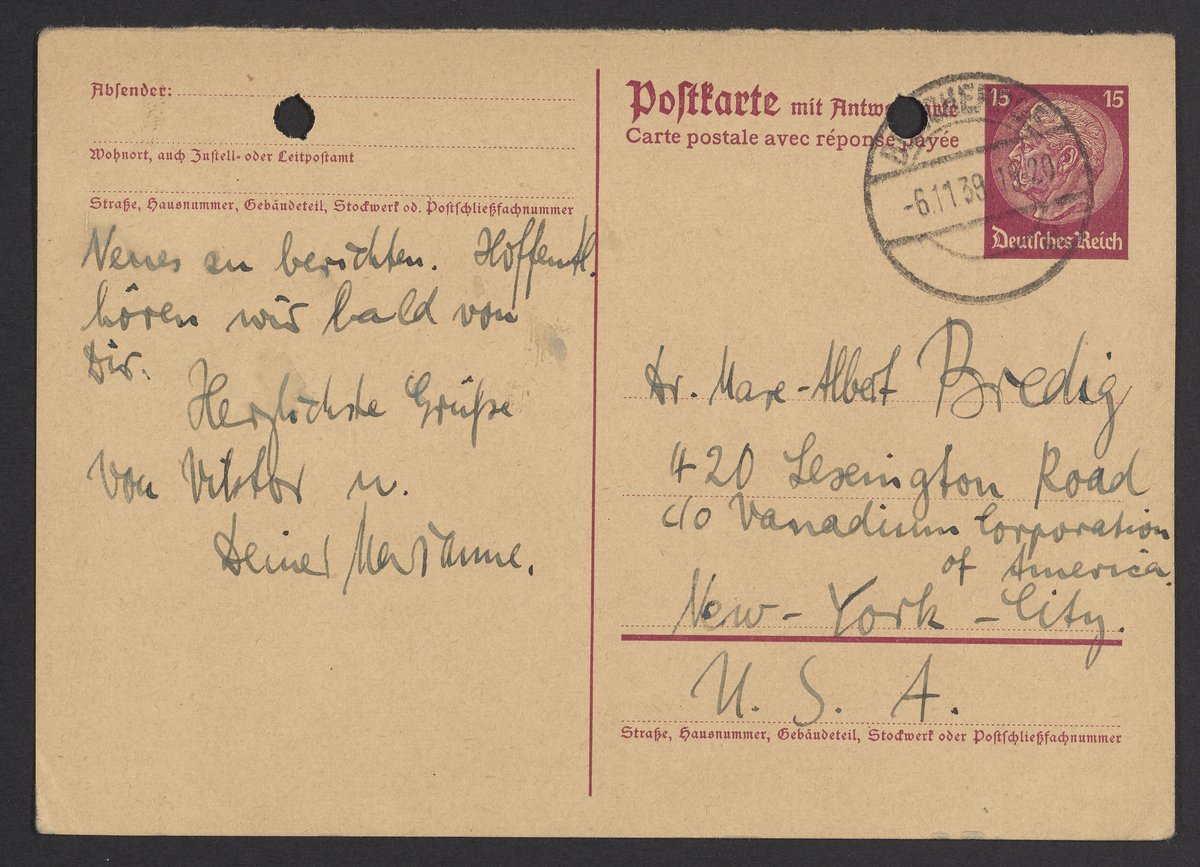 Absender:
Wohnort, auch Zustell- oder Leitpostamt
Straße, Hausnummer, Gebäudeteil, Stockwerk od. Postschließfachnummer
Neues zu berichten. Hoffentl.
hören wir bald von
Dir.
Herzlichste Grüße
von Viktor u.
Deiner Marianne.
Postkarte mit Antwortkarte
Carte postale avec réponse payée
15 15
-6.11.39 18-20
Deutsches Reich
Dr. Max-Albert Bredig
420 Lexington Road
c/o Vanadium Corporation
of America.
New-York-City.
U. S. A.
Straße, Hausnummer, Gebäudeteil, Stockwerk oder Postschließfachnummer